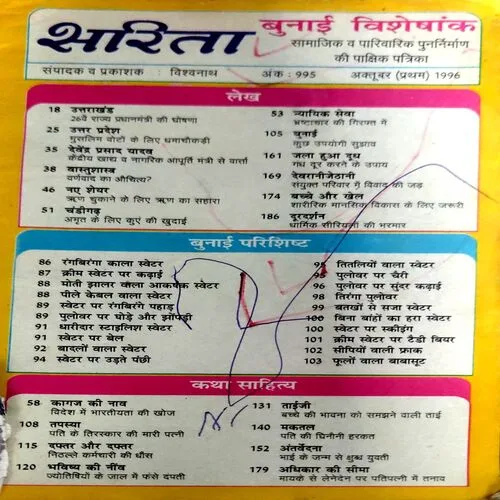 सरिता
बुनाई विशेषांक
सामाजिक व पारिवारिक पुनर्निर्माण
की पाक्षिक पत्रिका
संपादक व प्रकाशक : विश्वनाथ अंक : 995 अक्तूबर (प्रथम) 1996
लेख
18 उत्तराखंड
26वें राज्य प्रधानमंत्री की घोषणा
25 उत्तर प्रदेश
मुसलिम वोटों के लिए धमाचौकड़ी
35 देवेंद्र प्रसाद यादव
केंद्रीय खाद्य व नागरिक आपूर्ति मंत्री से वार्त्ता
38 वास्तुशास्त्र
वर्णवाद का औचित्य?
46 नए शेयर
ऋण चुकाने के लिए ऋण का सहारा
51 चंडीगढ़
अमृत के लिए कुएं की खुदाई
53 न्यायिक सेवा
भ्रष्टाचार की गिरफ्त में
105 बुनाई
कुछ उपयोगी सुझाव
161 जला हुआ दूध
गंध दूर करने के उपाय
169 देवरानीजेठानी
संयुक्त परिवार में विवाद की जड़
174 बच्चे और खेल
शारीरिक मानसिक विकास के लिए जरूरी
186 दूरदर्शन
धार्मिक सीरियलों की भरमार
बुनाई परिशिष्ट
86 रंगबिरंगा काला स्वेटर
87 क्रीम स्वेटर पर कढ़ाई
88 मोती झालर वाला आकर्षक स्वेटर
88 पीले केबल वाला स्वेटर
89 स्वेटर पर रंगबिरंगे पहाड़
89 पुलोवर पर घोड़े और झोंपड़ी
91 धारीदार स्टाइलिश स्वेटर
91 स्वेटर पर बेल
92 बादलों वाला स्वेटर
94 स्वेटर पर उड़ते पंछी
95 तितलियों वाला स्वेटर
96 पुलोवर पर चैरी
96 पुलोवर पर सुंदर कढ़ाई
98 तिरंगा पुलोवर
99 बतखों से सजा स्वेटर
100 बिना बांहों का हरा स्वेटर
100 स्वेटर पर स्कीइंग
101 क्रीम स्वेटर पर टैडी बियर
102 सीपियों वाली फ्राक
103 फूलों वाला बाबासूट
कथा साहित्य
58 कागज की नाव
विदेश में भारतीयता की खोज
108 तपस्या
पति के तिरस्कार की मारी पत्नी
115 दफ्तर और दफ्तर
निठल्ले कर्मचारी की धौंस
120 भविष्य की नींव
ज्योतिषियों के जाल में फंसे दंपती
131 ताईजी
बच्चे की भावना को समझने वाली ताई
140 मकतल
पति की घिनौनी हरकत
152 अंतर्वेदना
भाई के जन्म से क्षुब्ध युवती
179 अधिकार की सीमा
मायके से लेनेदेन पर पतिपत्नी में तनाव